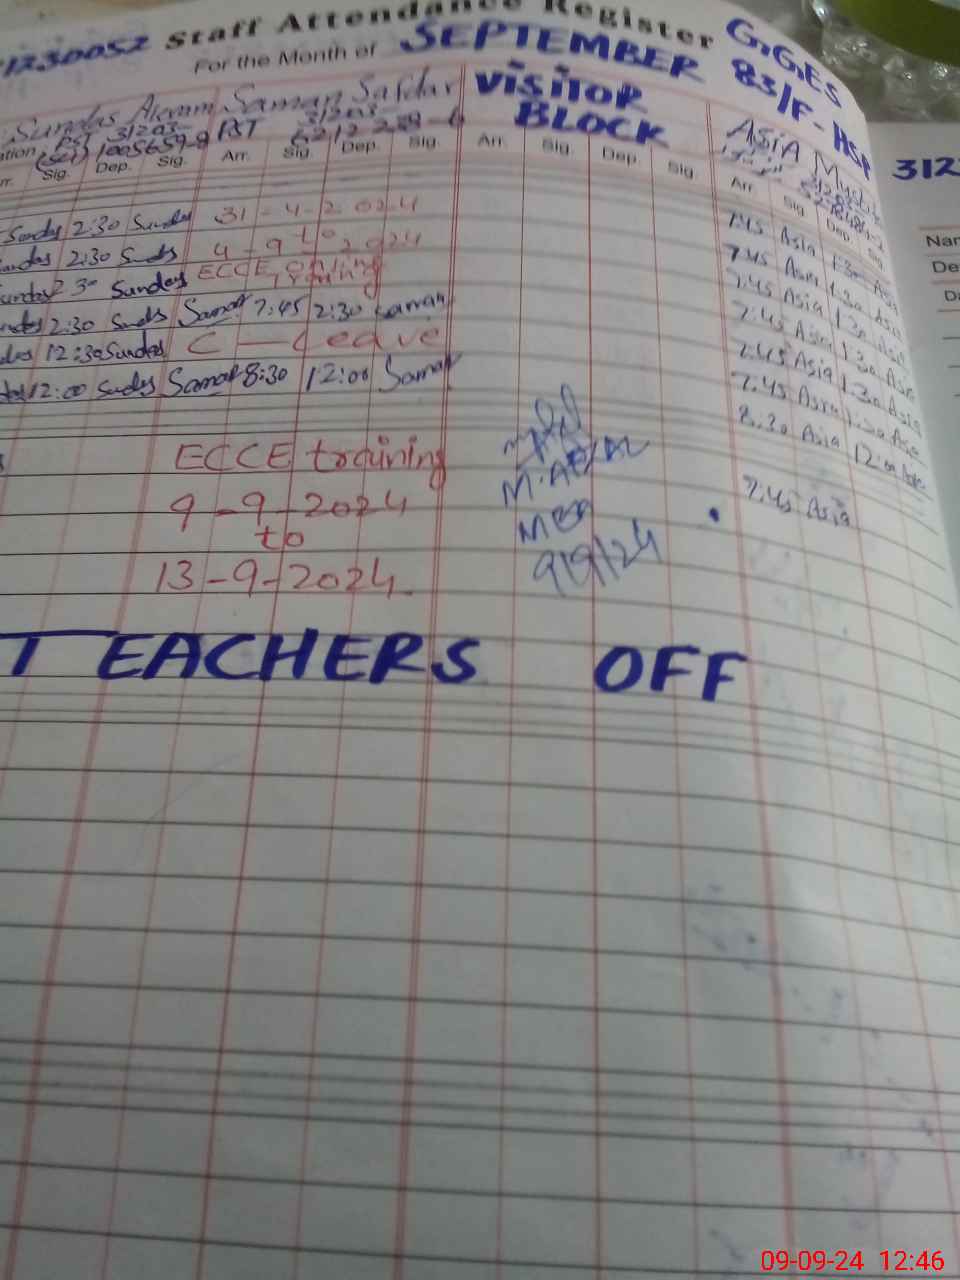 31230052 Staff Attendance Register G.G.E.S
For the Month of SEPTEMBER 83/F - HSP
Sundas Akram Saman Safdar VISITOR
BLOCK
Asia
PST 31203 PST 31203
Sig. Dep. Sig. Arr. Sig. Dep. Sig. Arr. Sig. Dep. Sig. Arr. Sig. Dep. Sig.
Sundas 2:30 Sundas 31-4-2024 7:45 Asia 1:30 Asia
to
Sundas 2:30 Sundas 4-9-2024 7:45 Asia 1:30 Asia
Sundas 2:30 Sundas ECCE training 7:45 Asia 1:30 Asia
Sundas 2:30 Sundas Saman 7:45 2:30 Saman 7:45 Asia 1:30 Asia
Sundas 12:30 Sundas C - Leave 7:45 Asia 1:30 Asia
Sundas 12:00 Sundas Saman 8:30 12:00 Saman 7:45 Asia 1:30 Asia
8:30 Asia 12:00 Asia
ECCE training
7:45 Asia
M. AFZAL
9-9-2024
MEA
to
9/9/24
13-9-2024
TEACHERS OFF
312
Nam
De
Da
09-09-24 12:46